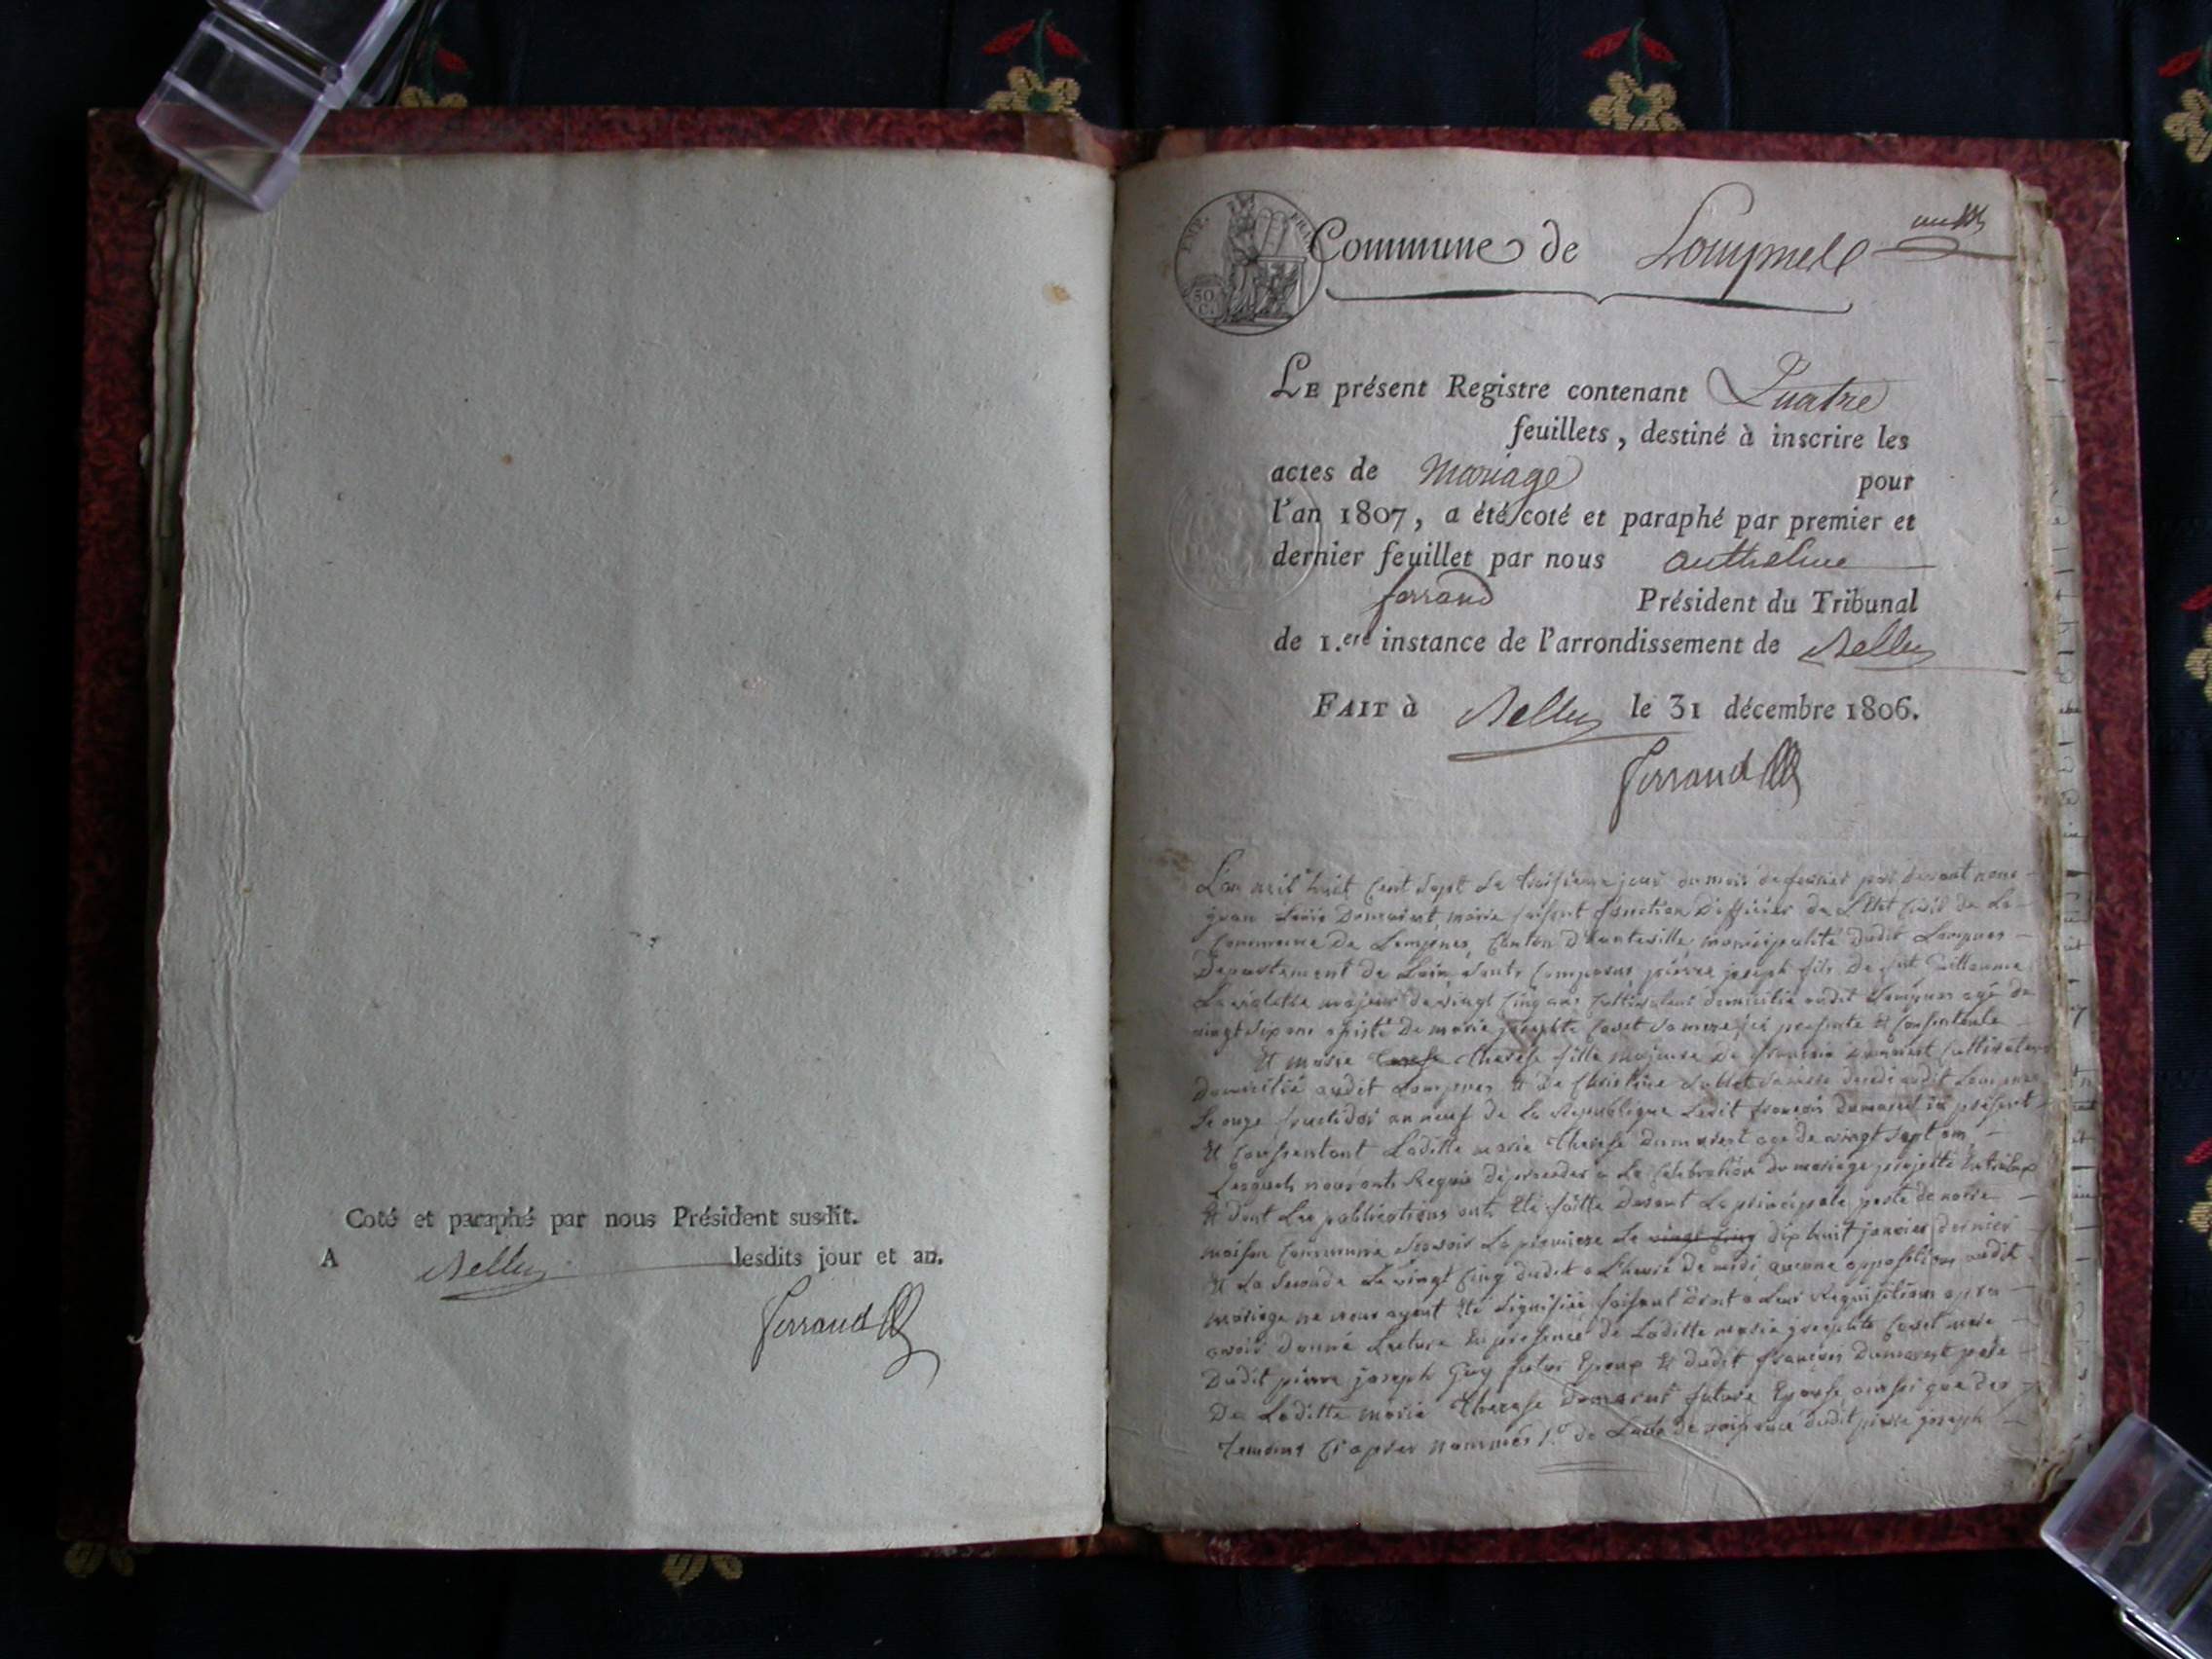 Coté et paraphé par nous Président susdit.
A Belley lesdits jour et an.
Ferrand
EMP. FRAN.
50 C.
Commune de Lompnes
un
LE présent Registre contenant Quatre
feuillets, destiné à inscrire les
actes de Mariage pour
l'an 1807, a été coté et paraphé par premier et
dernier feuillet par nous anthelme
ferrand Président du Tribunal
de 1.ere instance de l'arrondissement de Belley
FAIT à Belley le 31 décembre 1806.
Ferrand
L'an mil huit Cent Sept Le troisieme jour du mois de fevrier par devant nous
jean Dumarest, maire faisant fonction D'officier de L'Etat Civil de La
Commune De Lompnes, Canton D'hauteville, municipalité dudit Lompnes
Departement de Lain Sont Comparus pierre joseph fils De fut Guillaume
majeur de vingt Cinq ans Cultivateur domicilié audit Lompnes agé de
vingt six ans assisté De marie josephte Cavet sa mere ici presente & Consentante
Et marie therese fille majeure De francois Dumarest Cultivateur
Domicilié audit Lompnes & De Christine audit Lompnes
Le onze fructidor an neuf de La Republique Ledit francois Dumarest ici présent
Et Consentant Laditte marie therese Dumarest agé de vingt sept ans
Lesquels nous ont Requis de proceder a La Celebration du mariage projetté Entr'eux
Et dont Les publications ont Eté faitte Devant La principale porte de notre
maison Commune Scavoir La premiere Le vingt Cinq dix huit janvier dernier
Et La Seconde Le vingt Cinq dudit a L'heure De midi, aucune opposition audit
mariage ne nous ayant Eté Signifiée faisant Droit a Leur Requisition apres
avoir Donné Lecture En presence de Laditte marie josephte Cavet mere
Dudit pierre joseph Guy futur Epoux & dudit francois Dumarest pere
De Laditte marie therese Dumarest future Epouse ainsi que des
temoins Ci apres nommés 1.º de dudit pierre joseph